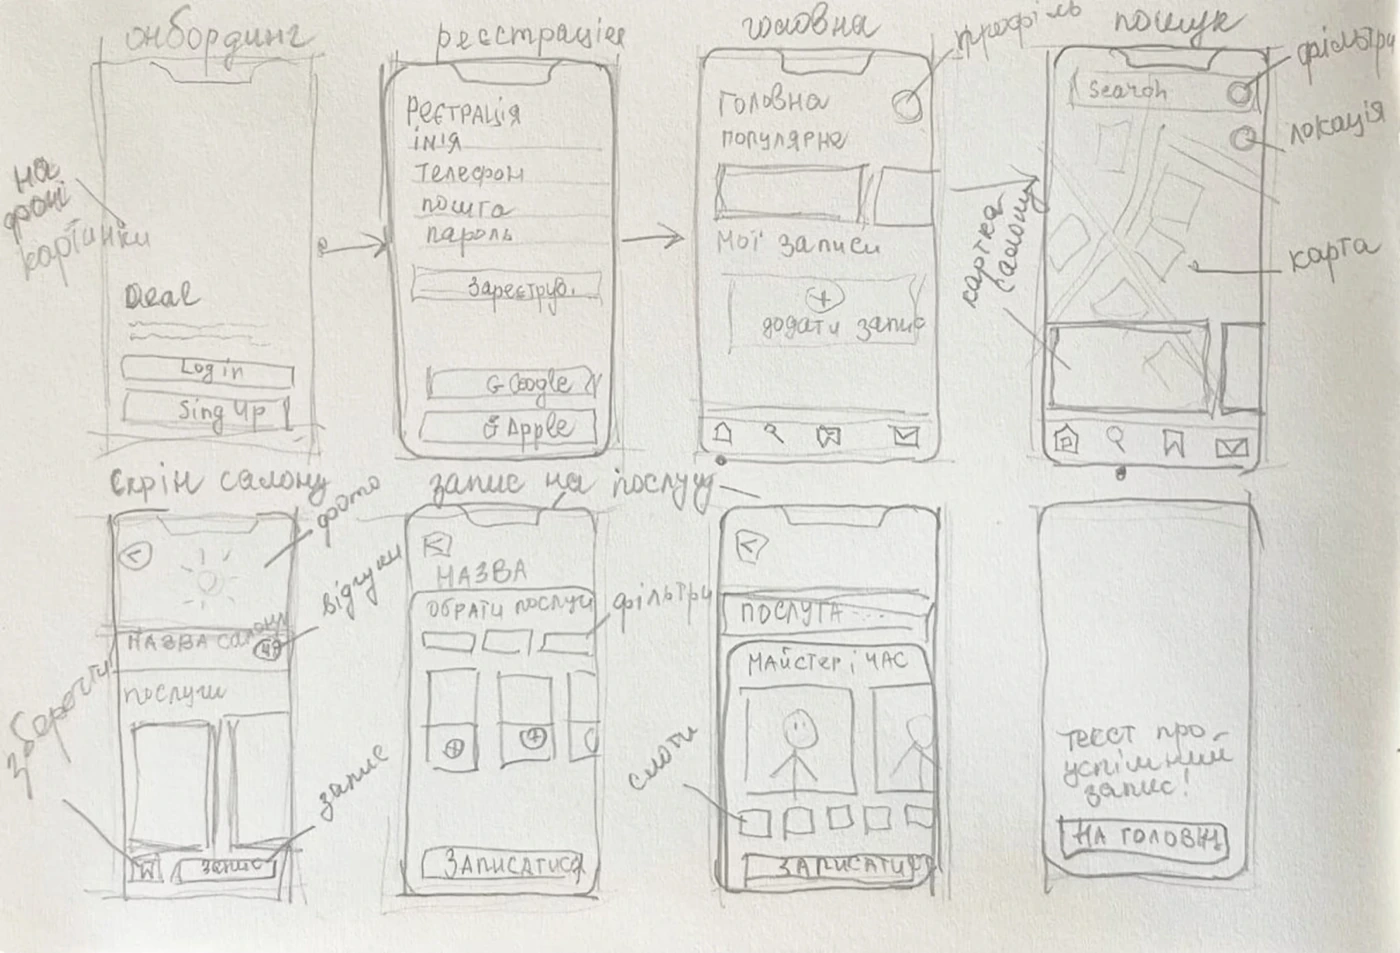 онбординг
на
фоні
картинки
Deal
Log in
Sing Up
реєстрація
Реєтрація
ім'я
телефон
пошта
пароль
Зареєтрув.
G Google
Apple
головна
профіль
головна
популярне
Мої записи
+
додати запис
пошук
фільтри
Search
локація
карта
картка
салону
скрін салону
фото
відгуки
НАЗВА салону
4,9
послуги
зберегти
запис
запис
запис на послугу
НАЗВА
ОБРАТИ ПОСЛУГИ
фільтри
+
+
ЗАПИСАТИСЯ
ПОСЛУГА
МАЙСТЕР І ЧАС
слоти
ЗАПИСАТИСЯ
текст про
успішний
запис!
НА ГОЛОВНУ